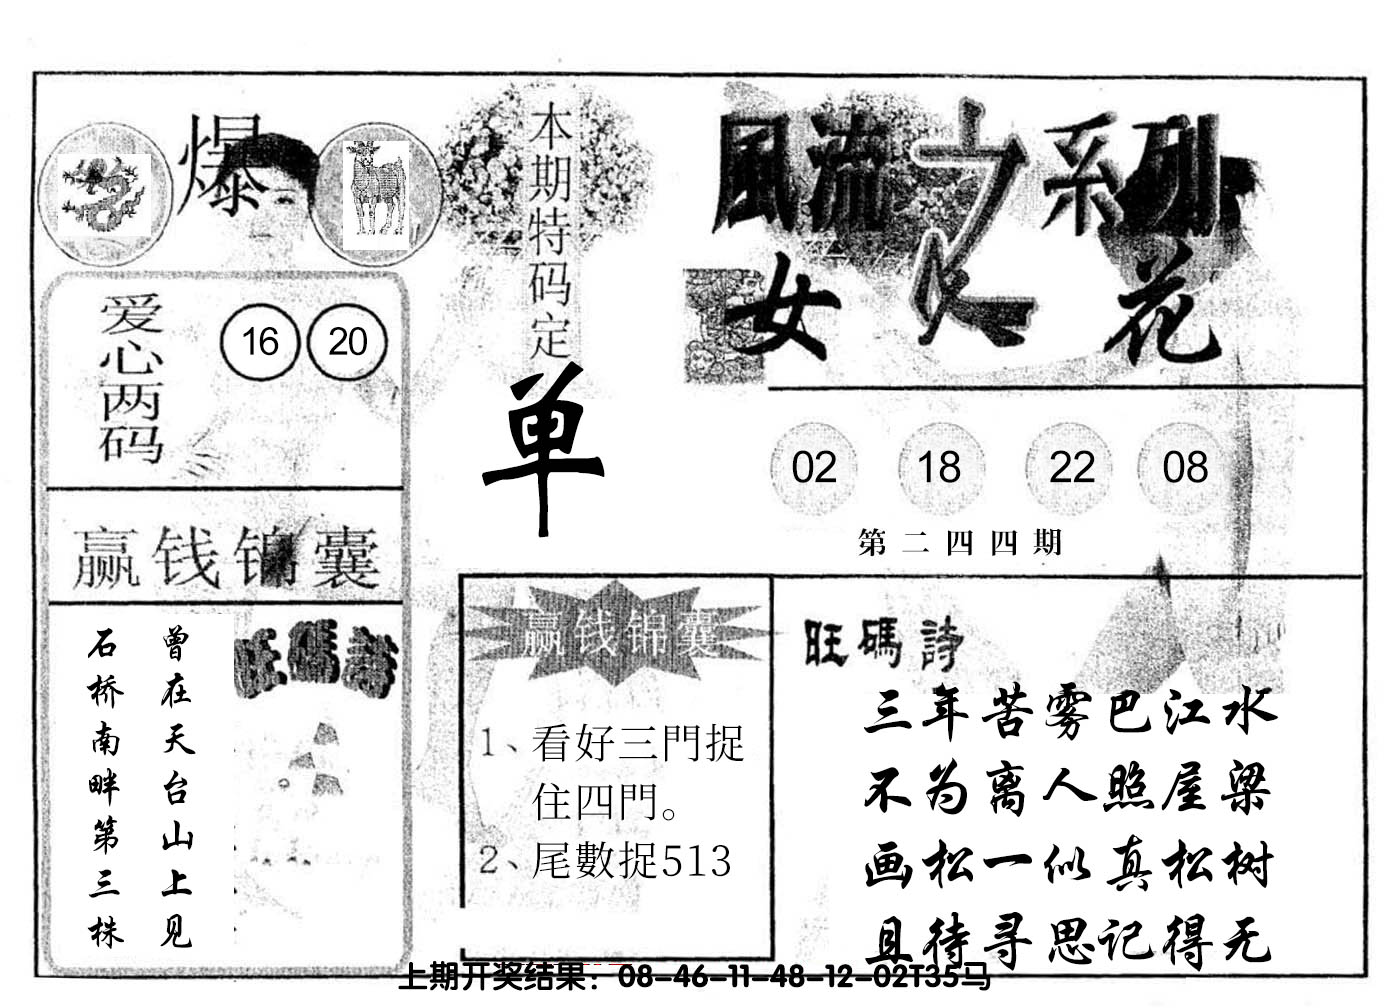 爆
本期特码定
单
風流之系列
女人花
爱心两码
16 20
02 18 22 08
第二四四期
赢钱锦囊
旺碼詩
曾在天台山上见
石桥南畔第三株
赢钱锦囊
1、看好三門捉
住四門。
2、尾數捉513
旺碼詩
三年苦雾巴江水
不为离人照屋梁
画松一似真松树
且待寻思记得无
上期开奖结果：08-46-11-48-12-02T35马